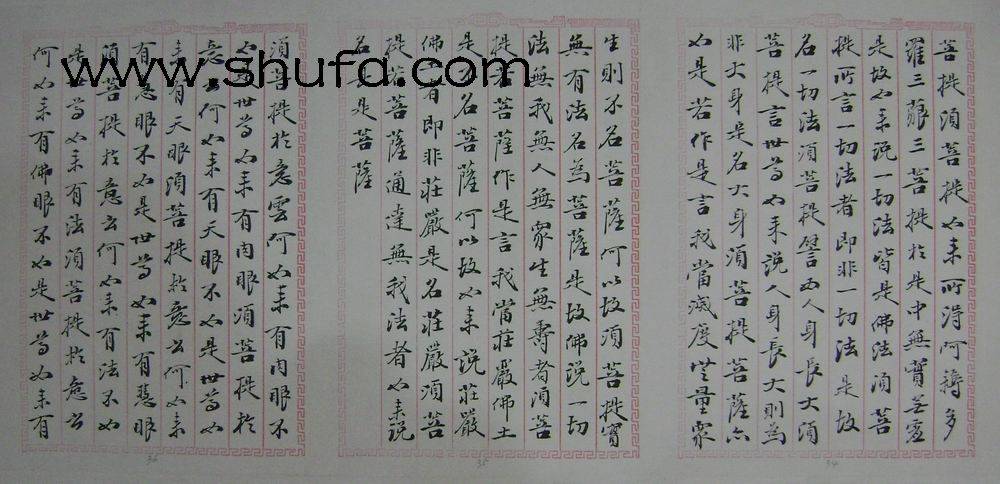 菩提須菩提如来所得阿耨多
羅三藐三菩提於是中無實無虛
是故如来説一切法皆是佛法須菩
提所言一切法者即非一切法是故
名一切法須菩提譬如人身長大須
菩提言世尊如来説人身長大則為
非大身是名大身須菩提菩薩亦
如是若作是言我當滅度無量衆
34
生則不名菩薩何以故須菩提實
無有法名為菩薩是故佛説一切
法無我無人無衆生無壽者須菩
提若菩薩作是言我當莊嚴佛土
是不名菩薩何以故如来説莊嚴
佛者即非莊嚴是名莊嚴須菩
提若菩薩通達無我法者如来説
名真是菩薩
35
須菩提於意雲何如来有肉眼不
如是世尊如来有肉眼須菩提於
意云何如来有天眼不如是世尊如
来有天眼須菩提於意云何如来
有慧眼不如是世尊如来有慧眼
須菩提於意云何如来有法眼不如
是世尊如来有法眼須菩提於意云
何如来有佛眼不如是世尊如来有
36
www.shufa.com